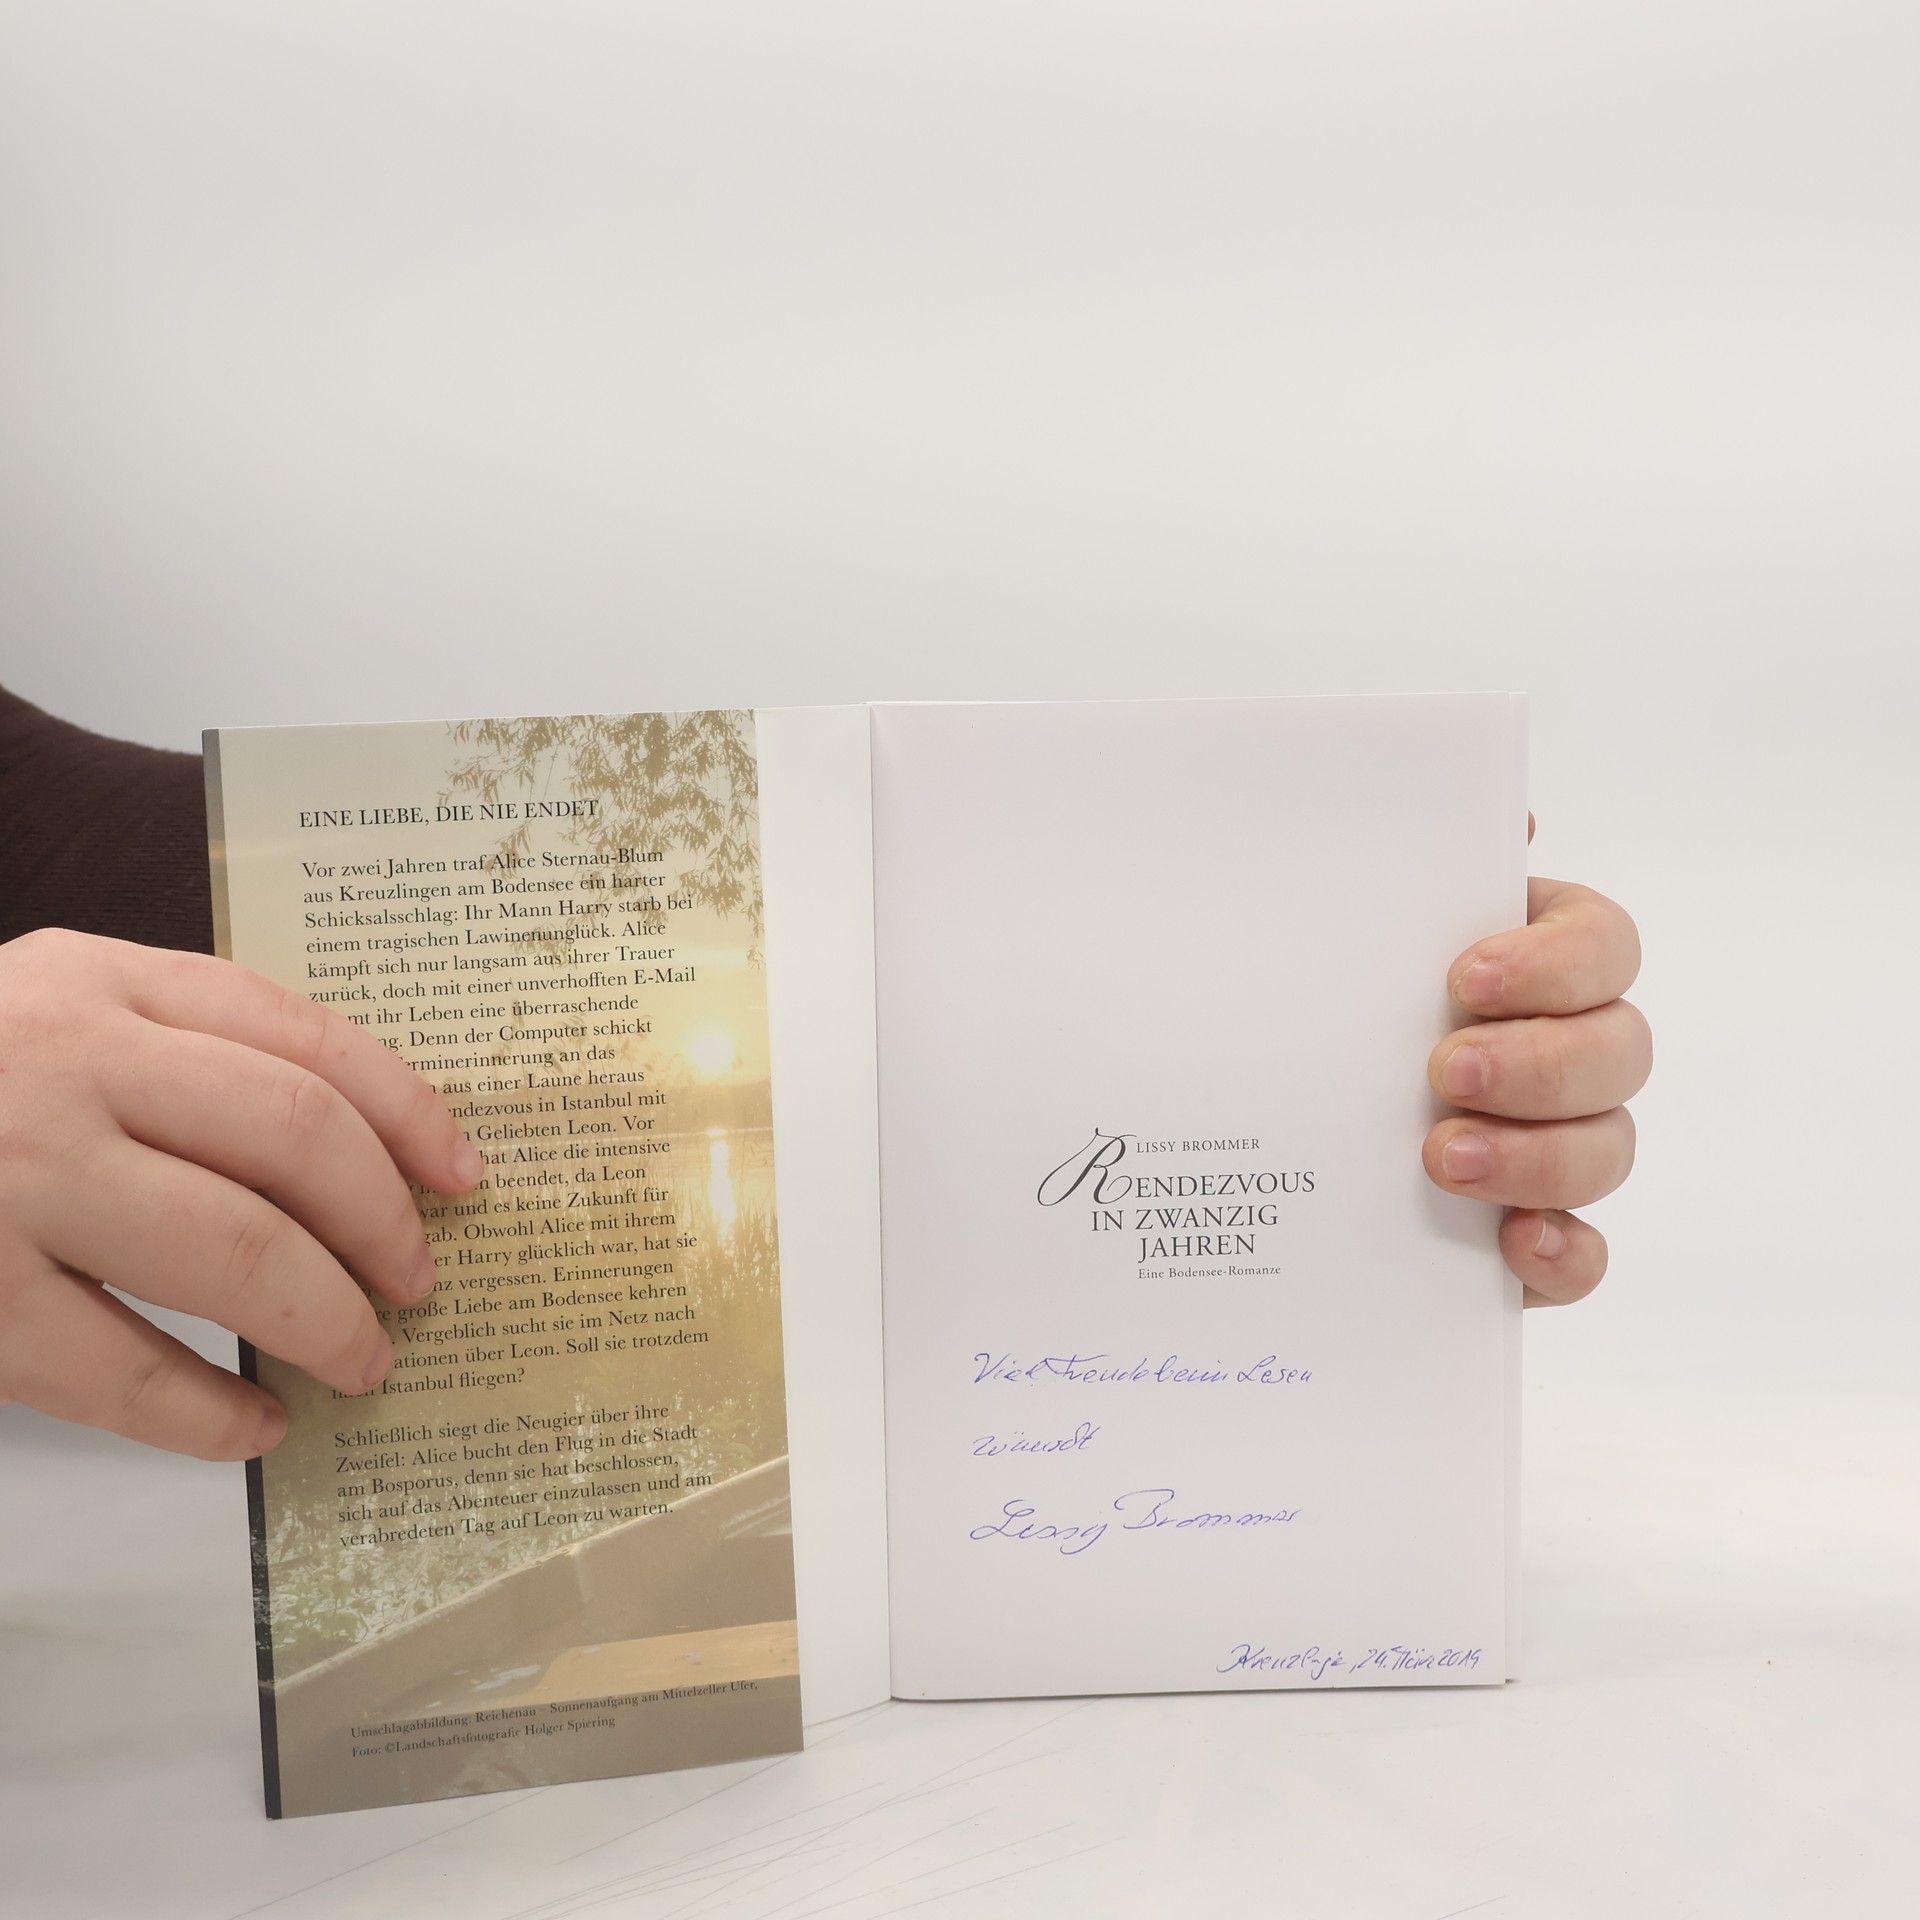 EINE LIEBE, DIE NIE ENDET
Vor zwei Jahren traf Alice Sternau-Blum
aus Kreuzlingen am Bodensee ein harter
Schicksalsschlag: Ihr Mann Harry starb bei
einem tragischen Lawinenunglück. Alice
kämpft sich nur langsam aus ihrer Trauer
zurück, doch mit einer unverhofften E-Mail
mt ihr Leben eine überraschende
ng. Denn der Computer schickt
erminerinnerung an das
aus einer Laune heraus
endezvous in Istanbul mit
n Geliebten Leon. Vor
hat Alice die intensive
n beendet, da Leon
war und es keine Zukunft für
gab. Obwohl Alice mit ihrem
er Harry glücklich war, hat sie
nz vergessen. Erinnerungen
re große Liebe am Bodensee kehren
. Vergeblich sucht sie im Netz nach
ationen über Leon. Soll sie trotzdem
Istanbul fliegen?
Schließlich siegt die Neugier über ihre
Zweifel: Alice bucht den Flug in die Stadt
am Bosporus, denn sie hat beschlossen,
sich auf das Abenteuer einzulassen und am
verabredeten Tag auf Leon zu warten.
Umschlagabbildung: Reichenau – Sonnenaufgang am Mittelzeller Ufer,
Foto: ©Landschaftsfotografie Holger Spiering
LISSY BROMMER
RENDEZVOUS
IN ZWANZIG
JAHREN
Eine Bodensee-Romanze
Viel Freude beim Lesen
wünscht
Lissy Brommer
Kreuzlingen, 24. März 2019